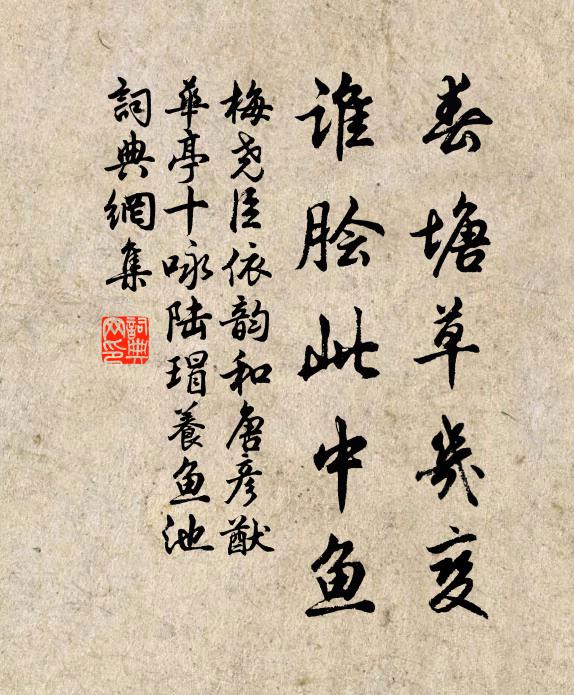 春塘草幾变
谁脍此中鱼
梅尧臣依韵和唐彦猷
華亭十咏陆瑁養鱼池
詞典網集
詞典网印